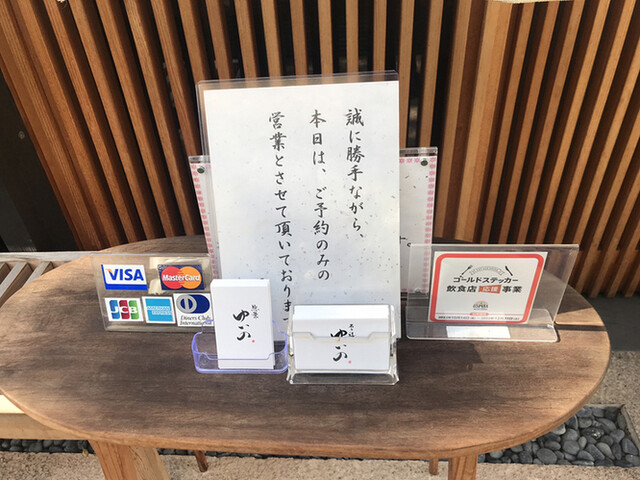 誠に勝手ながら、
本日は、ご予約のみの
営業とさせて頂いておりま
VISA
MasterCard
JCB
Diners Club
International
ゆお
ゆお
ゴールドステッカー
飲食店 応援 事業